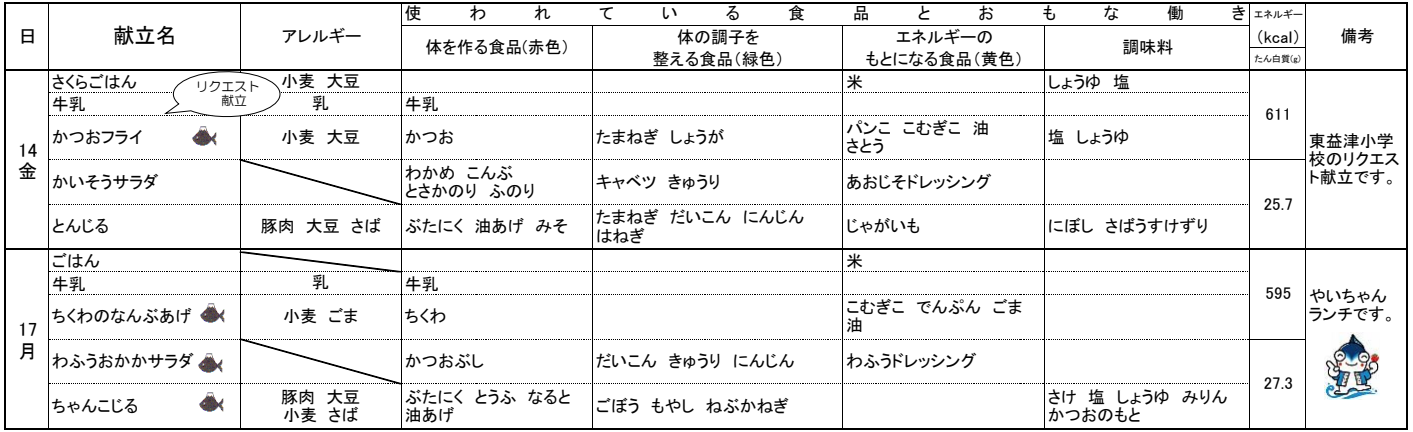 日 献立名 アレルギー 使われている食品とおもな働き エネルギー
(kcal)
たん白質(g) 備考
体を作る食品(赤色) 体の調子を
整える食品(緑色) エネルギーの
もとになる食品(黄色) 調味料
14
金
さくらごはん 小麦 大豆 米 しょうゆ 塩
リクエスト
献立
牛乳 乳 牛乳
611
かつおフライ 小麦 大豆 かつお たまねぎ しょうが パンこ こむぎこ 油
さとう 塩 しょうゆ
東益津小学
校のリクエス
ト献立です。
かいそうサラダ わかめ こんぶ
とさかのり ふのり キャベツ きゅうり あおじそドレッシング
25.7
とんじる 豚肉 大豆 さば ぶたにく 油あげ みそ たまねぎ だいこん にんじん
はねぎ じゃがいも にぼし さばうすけずり
17
月
ごはん 米
牛乳 乳 牛乳
595
ちくわのなんぶあげ 小麦 ごま ちくわ こむぎこ でんぷん ごま
油
やいちゃん
ランチです。
わふうおかかサラダ かつおぶし だいこん きゅうり にんじん わふうドレッシング
27.3
ちゃんこじる 豚肉 大豆
小麦 さば ぶたにく とうふ なると
油あげ ごぼう もやし ねぶかねぎ さけ 塩 しょうゆ みりん
かつおのもと